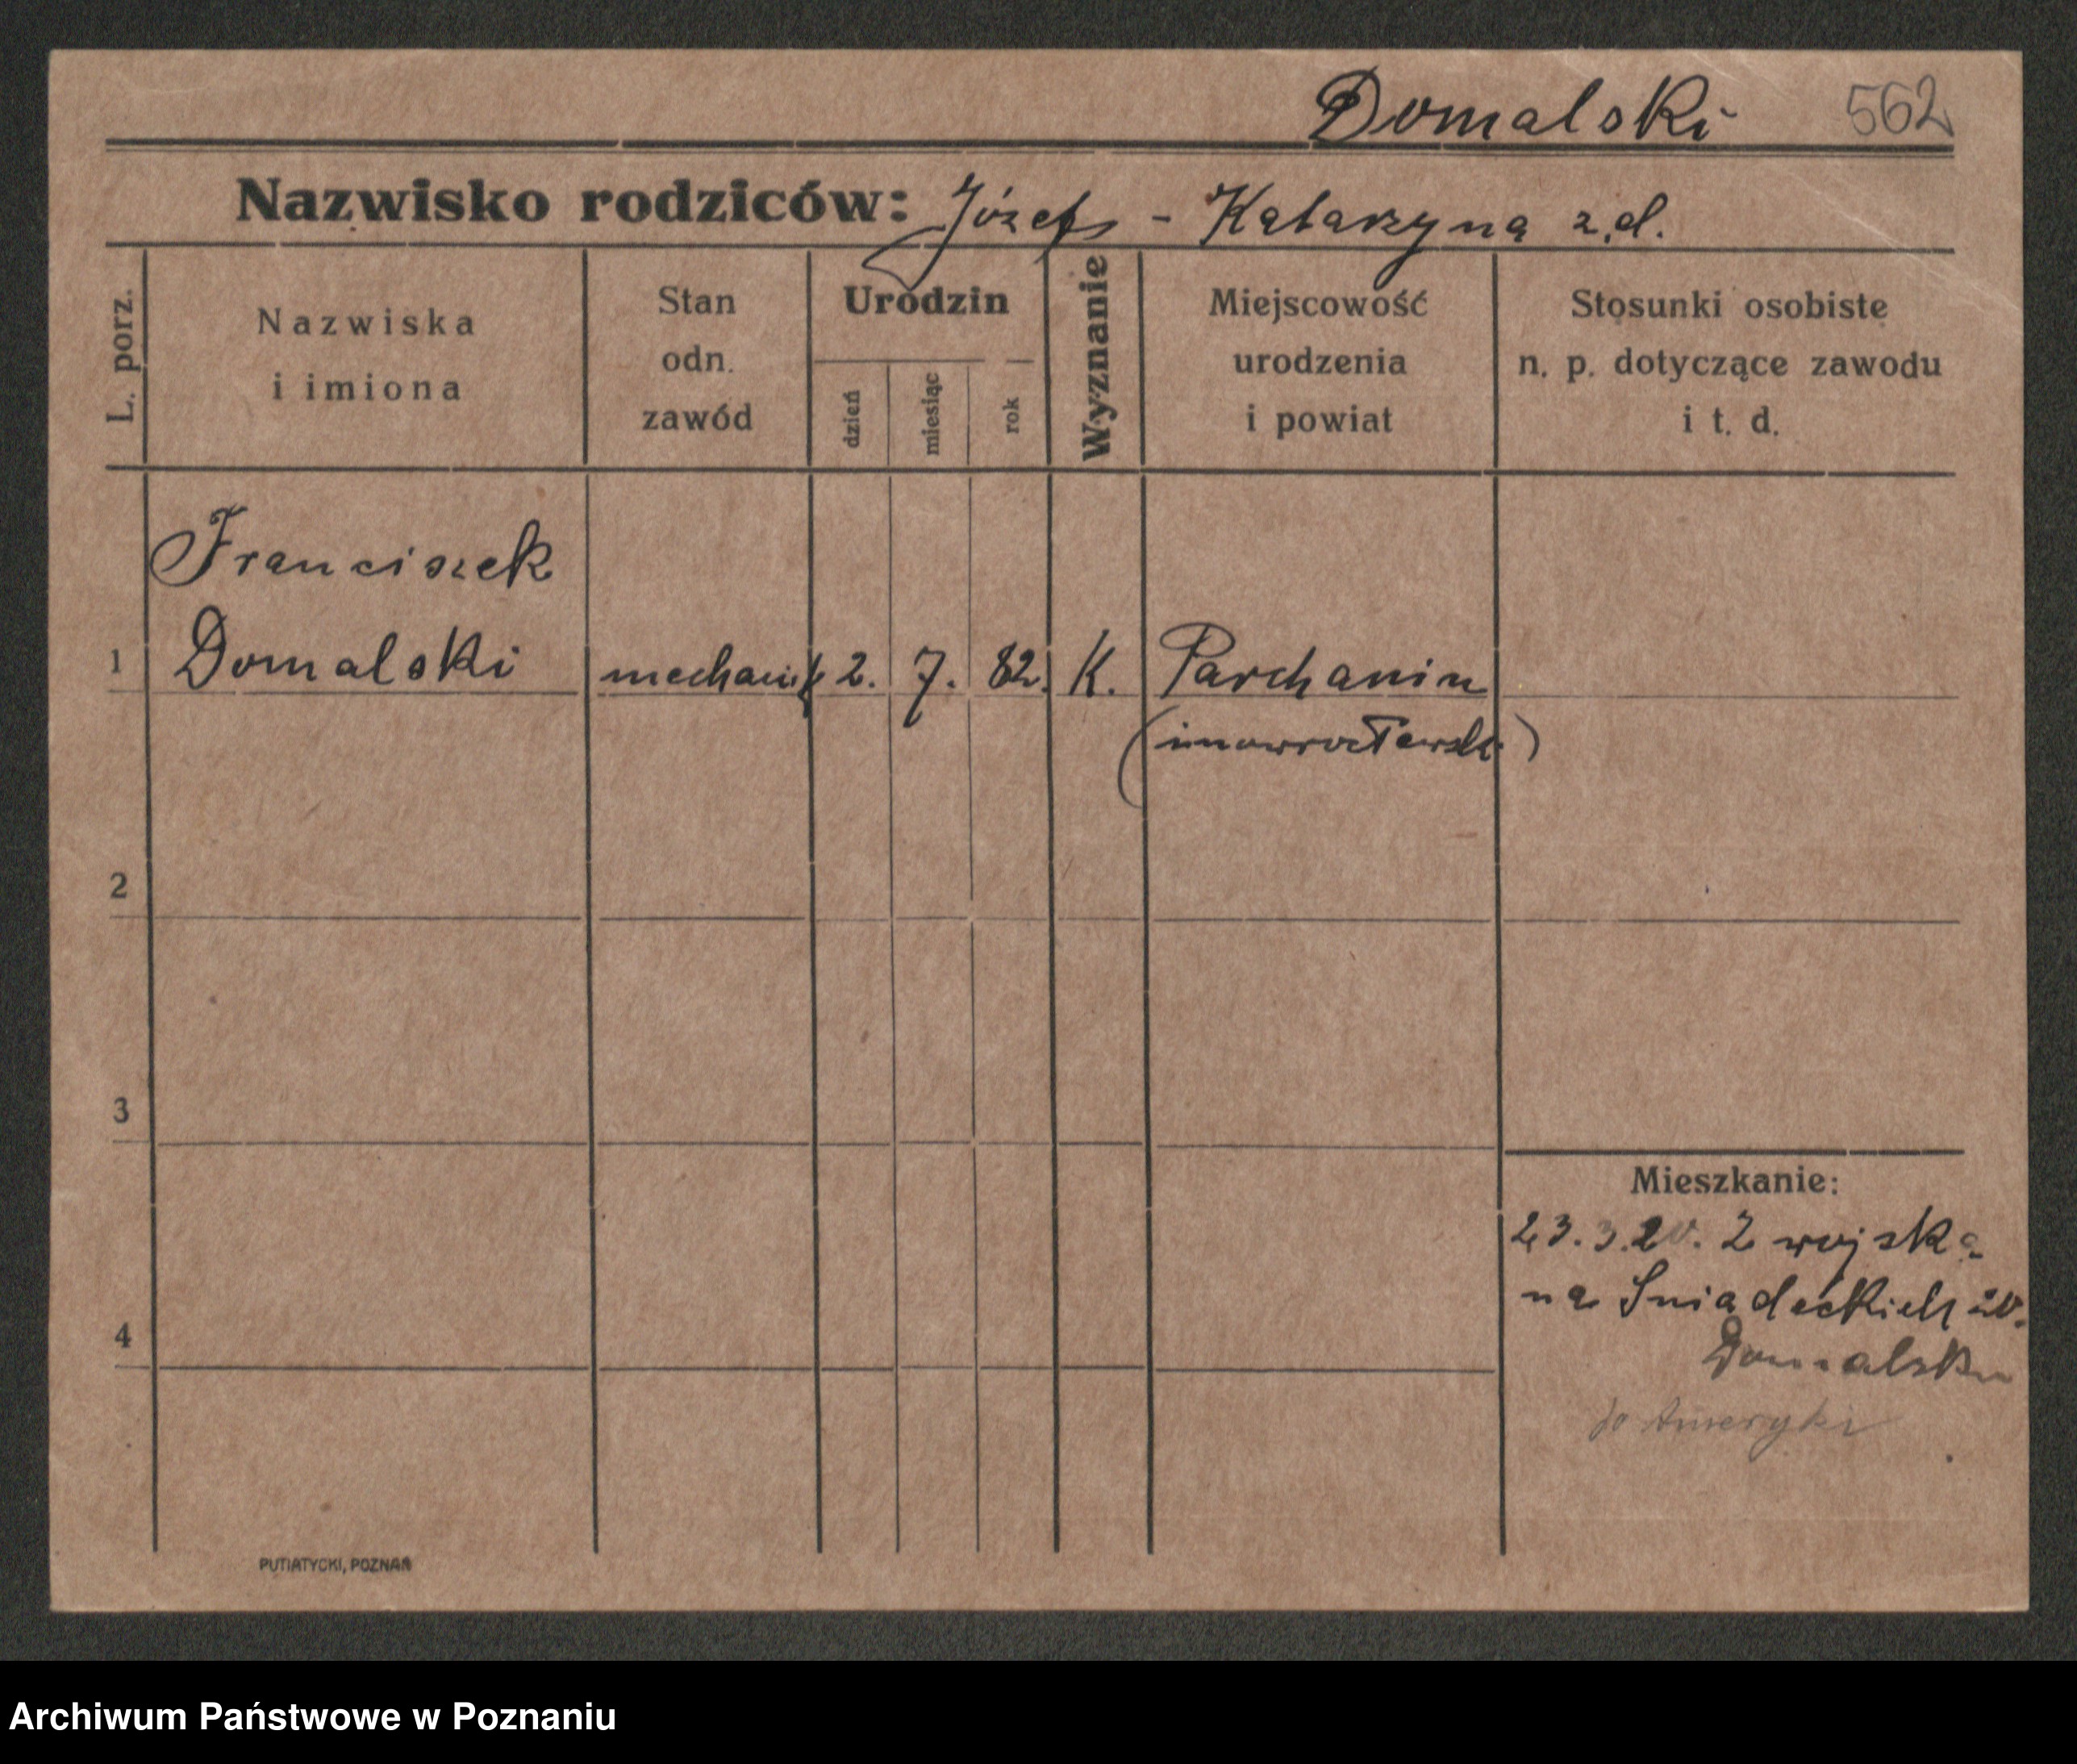 Domalski 562
Nazwisko rodziców: Józef - Katarzyna z.d.
L. porz.
Nazwiska
i imiona
Stan
odn.
zawód
Urodzin
dzień
miesiąc
rok
Wyznanie
Miejscowość
urodzenia
i powiat
Stosunki osobiste
n. p. dotyczące zawodu
i t. d.
Franciszek
1 Domalski mechanik 2. 7. 82. K. Parchanin
(inowrocławski)
2
3
4
Mieszkanie:
23.3.20. Z wojska
na Sniadeckich 20.
Domalski
do Ameryki
PUTIATYCKI, POZNAŃ
Archiwum Państwowe w Poznaniu